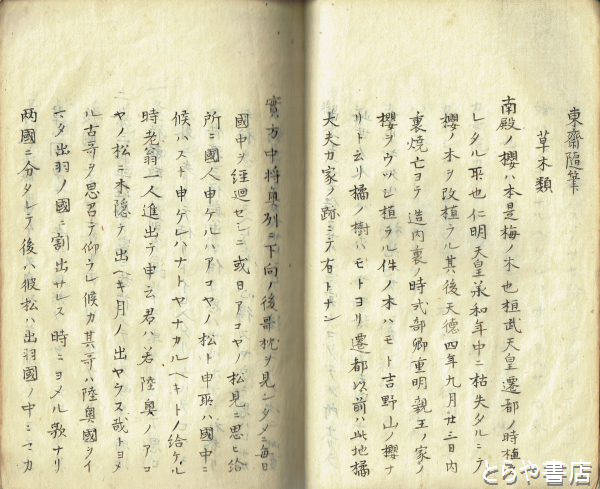 東齋隨筆
草木類
南殿ノ櫻ハ本是梅ノ木也桓武天皇遷都ノ時植ラ
レタル所也仁明天皇承和年中ニ枯失タルニテ
櫻ノ木ヲ改植ラル其後天德四年九月廿三日内
裏燒亡ヨテ造内裏ノ時式部卿重明親王ノ家ノ
櫻ヲウツシ植ラル件ノ木ハモト吉野山ノ櫻ナ
リト云リ橘ノ樹ハモトヨリ遷都以前ハ此地橘
大夫カ家ノ跡ニテ有トナン
實方中將奥列ニ下向ノ後哥枕ヲ見ンタメニ毎日
國中ヲ經迴セシニ或日アコヤノ松見ニ思ヒ給
所ニ國人申ケルハアコヤノ松ト申所ハ國中ニ
候ハスト申ケレハナトヤナカルヘキトノ給ケル
時老翁一人進出テ申云君ハ若陸奥ノアコ
ヤノ松ニ木隱テ出ヘキ月ノ出ヤラヌ哉トヨメ
ル古哥ヲ思召テ仰ラレ候カ其哥ハ陸奥國ヲイ
マタ出羽ノ國ニ割出サレス時ニヨメル歌ナリ
两國ニ分タレテ後ハ彼松ハ出羽國ノ中ニマカ
とらや書店